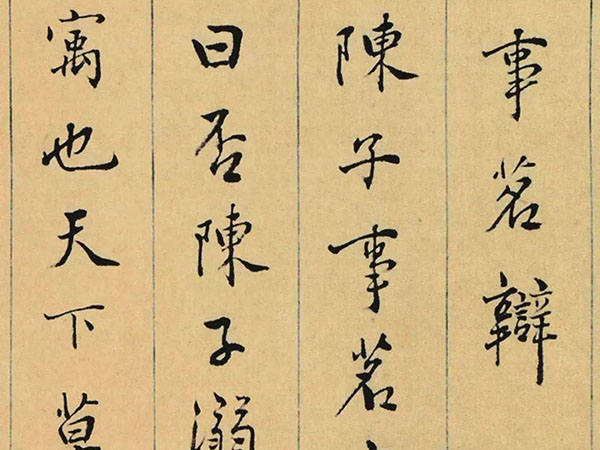 事茗辯
陳子事茗
曰否陳子溺
寓也天下莫